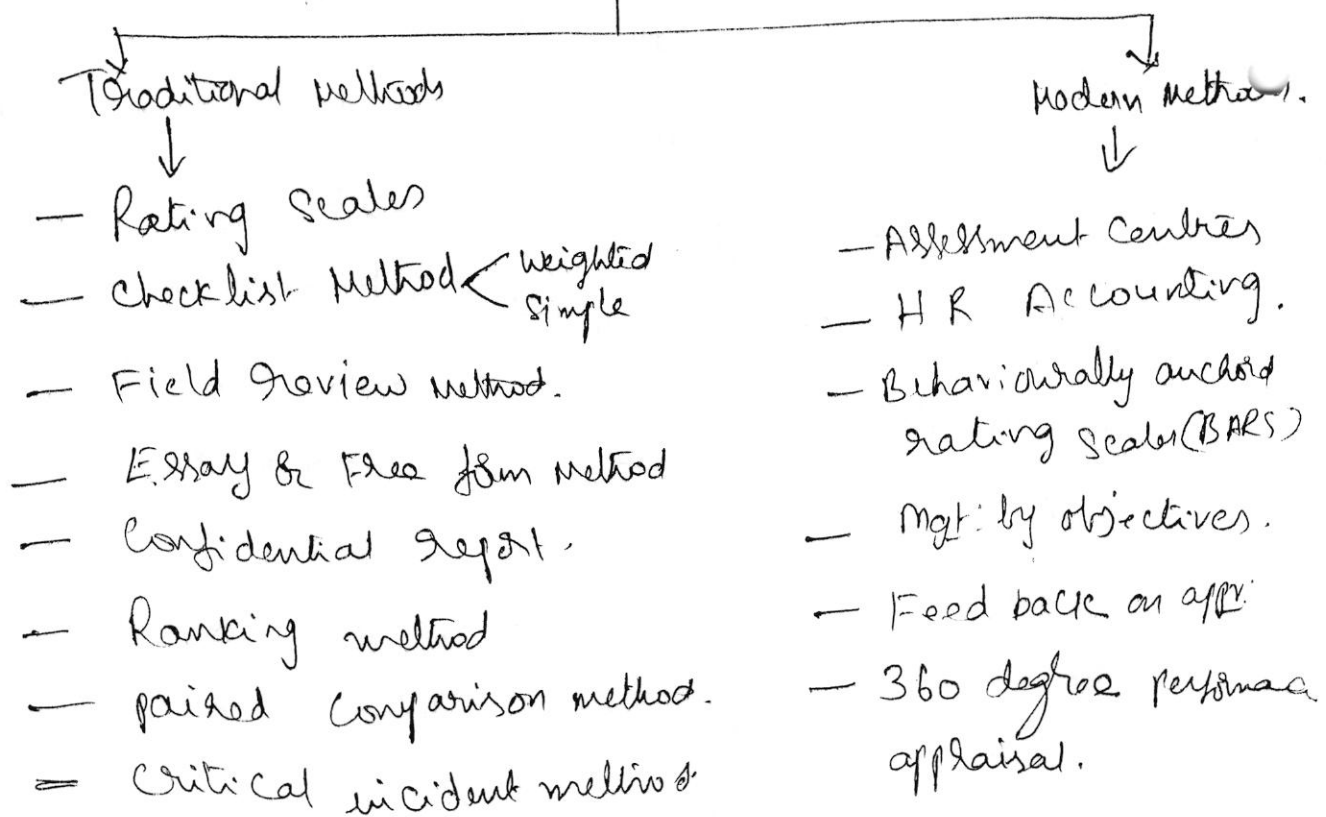 Traditional Methods
Modern Methods.
– Rating Scales
– Checklist Method < Weighted
Simple
– Field review method.
– Essay & Free form method
– Confidential report.
– Ranking method
– paired comparison method.
= Critical incident method
– Assessment Centres
– HR Accounting.
– Behaviourally anchord
rating scales (BARS)
– Mgt: by objectives.
– Feed back on appr:
– 360 degree performace
appraisal.